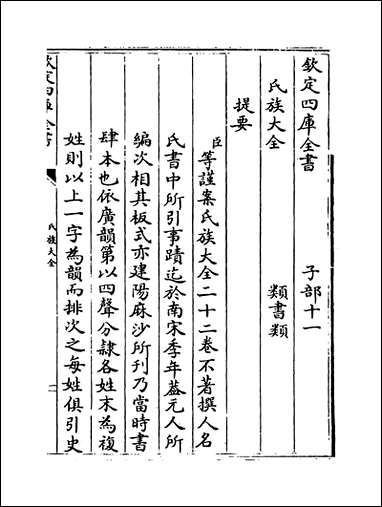 欽定四庫全書 子部十一
氏族大全 類書類
提要
臣等謹案氏族大全二十二卷不著撰人名
氏書中所引事蹟迄於南宋季年葢元人所
編次相其板式亦建陽麻沙所刊乃當時書
肆本也依廣韻第以四聲分隷各姓末為複
姓則以上一字為韻而排次之每姓俱引史
欽定四庫全書
氏族大全